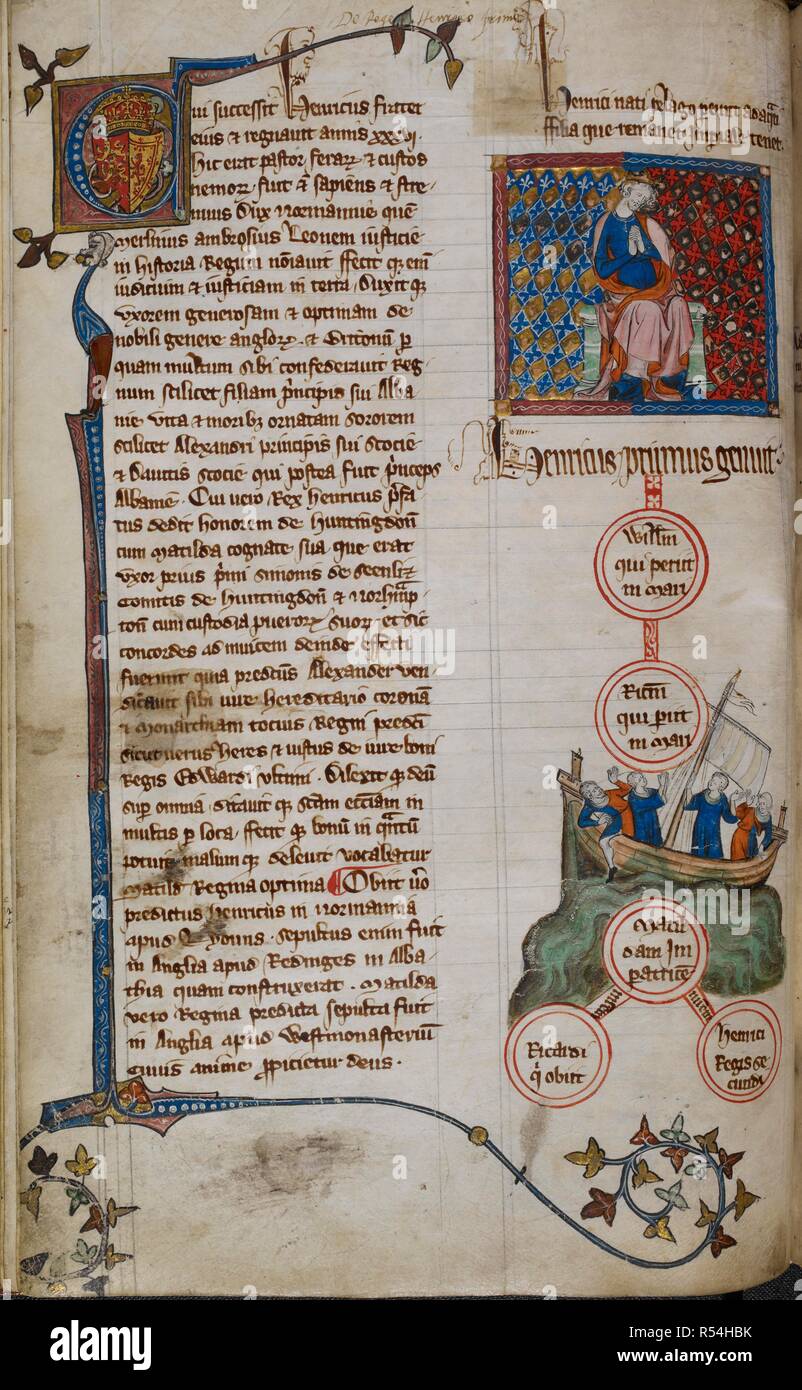 De Rege Henrico primo
Cui successit Henricus frater
eius & regnauit annis xxxvj.
hic erat pastor ferarum & custos
nemorum fuit enim sapiens & stre-
nuus Dux Normannie quem
Merlinus ambrosius Leonem iusticie
in historia Regum noiauit ffecit q; eni
iudicium & iusticiam in terra. Duxit q;
vxorem generosam & optimam de
nobili genere anglorum & Britonum p
quam multum sibi confederauit Reg-
num scilicet filiam principis sui Alba
nie vita & morib; ornatam sororem
scilicet Alexandri principis sui Scocie
& Dauitis Scocie qui postea fuit princeps
Albanie. Cui vero Rex henricus prefa-
tus dedit honorem de huntingdon
cum Matilda cognata sua que erat
vxor prius primi Simonis de Seenliz
Comitis de huntingdon & Norhamp
ton cum custodia puerorum suorum et sic
concordes ad inuicem deinde effecti
fuerunt quia predcus Alexander ven-
dicauit sibi iure hereditario coronam
& monarchiam tocius Regni predci
sicut verus heres & iustus de iure boni
Regis Edwardi vltimi. Dilexit q; deum
super omnia ditauit q; scam ecciam in
multis p loca, ffecit q; bonum in quantum
potuit malum q; deleuit vocabatur
Matild Regina optima Obiit uero
predictus henricus in Normannia
apud Lyouns. sepultus enim fuit
in Anglia apud Redinges in Abba
thia quam construxerat. Matilda
vero Regina predicta sepulta fuit
in Anglia apud Westmonasterium
cuius anime ppicietur deus.
Henrici nati pelago
filia que remanet imperiale tenet.
Henricus primus genuit
Willm
qui periit
in mari
Ricm
qui piit
in mari
Matil
dam Im
patrice
Ricardi
q obiit
henrici
Regis se
cundi
alamy
Image ID: R54HBK
www.alamy.com